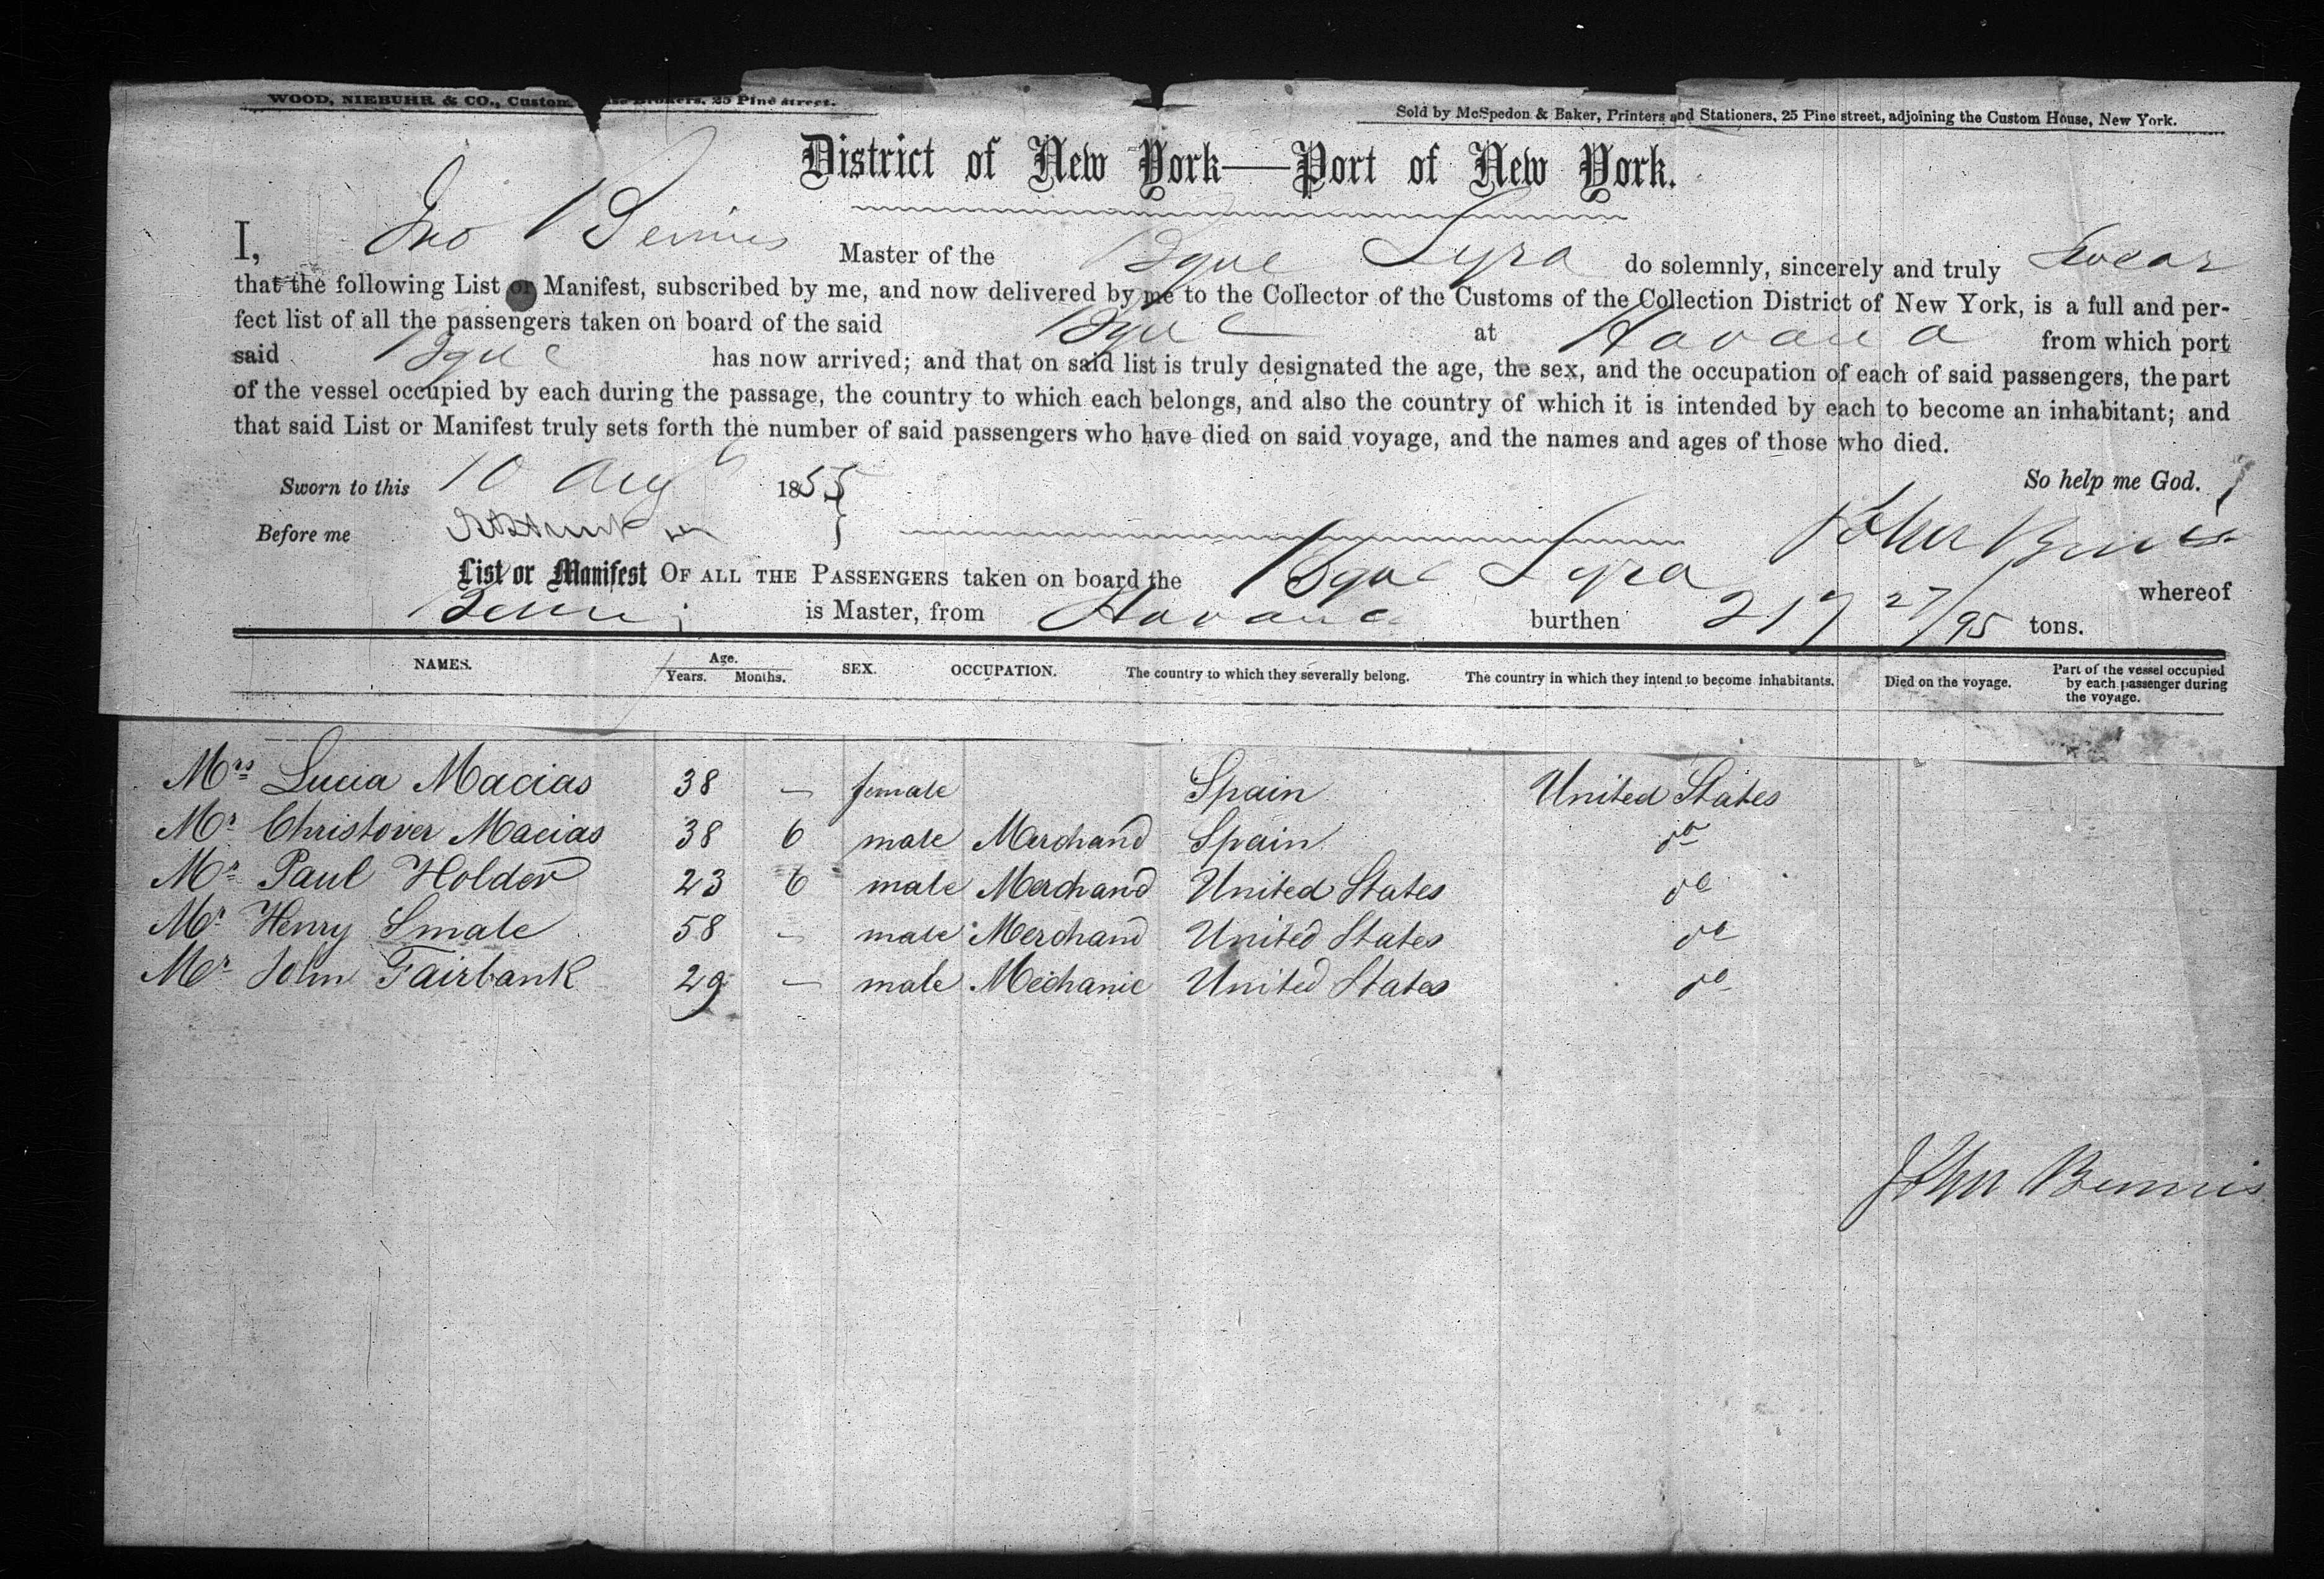 WOOD, NIEBUHR & CO., Custom Brokers, 25 Pine street.
Sold by McSpedon & Baker, Printers and Stationers, 25 Pine street, adjoining the Custom House, New York.
District of New York—Port of New York.
I, Jno Bennis Master of the Bque Lyra do solemnly, sincerely and truly Swear
that the following List or Manifest, subscribed by me, and now delivered by me to the Collector of the Customs of the Collection District of New York, is a full and per-
fect list of all the passengers taken on board of the said Bque at Havana from which port
said Bque has now arrived; and that on said list is truly designated the age, the sex, and the occupation of each of said passengers, the part
of the vessel occupied by each during the passage, the country to which each belongs, and also the country of which it is intended by each to become an inhabitant; and
that said List or Manifest truly sets forth the number of said passengers who have died on said voyage, and the names and ages of those who died.
Sworn to this 10 Aug 1855 So help me God.
Before me John Bennis
List or Manifest OF ALL THE PASSENGERS taken on board the Bque Lyra whereof
Bennis is Master, from Havana burthen 217 27/95 tons.
NAMES. Age. Years. Months. SEX. OCCUPATION. The country to which they severally belong. The country in which they intend to become inhabitants. Died on the voyage. Part of the vessel occupied by each passenger during the voyage.
Mrs Lucia Macias 38 — female Spain United States
Mr Christover Macias 38 6 male Merchand Spain do
Mr Paul Holder 23 6 male Merchand United States do
Mr Henry Smale 58 — male Merchand United States do
Mr John Fairbank 29 — male Mechanic United States do
John Bennis